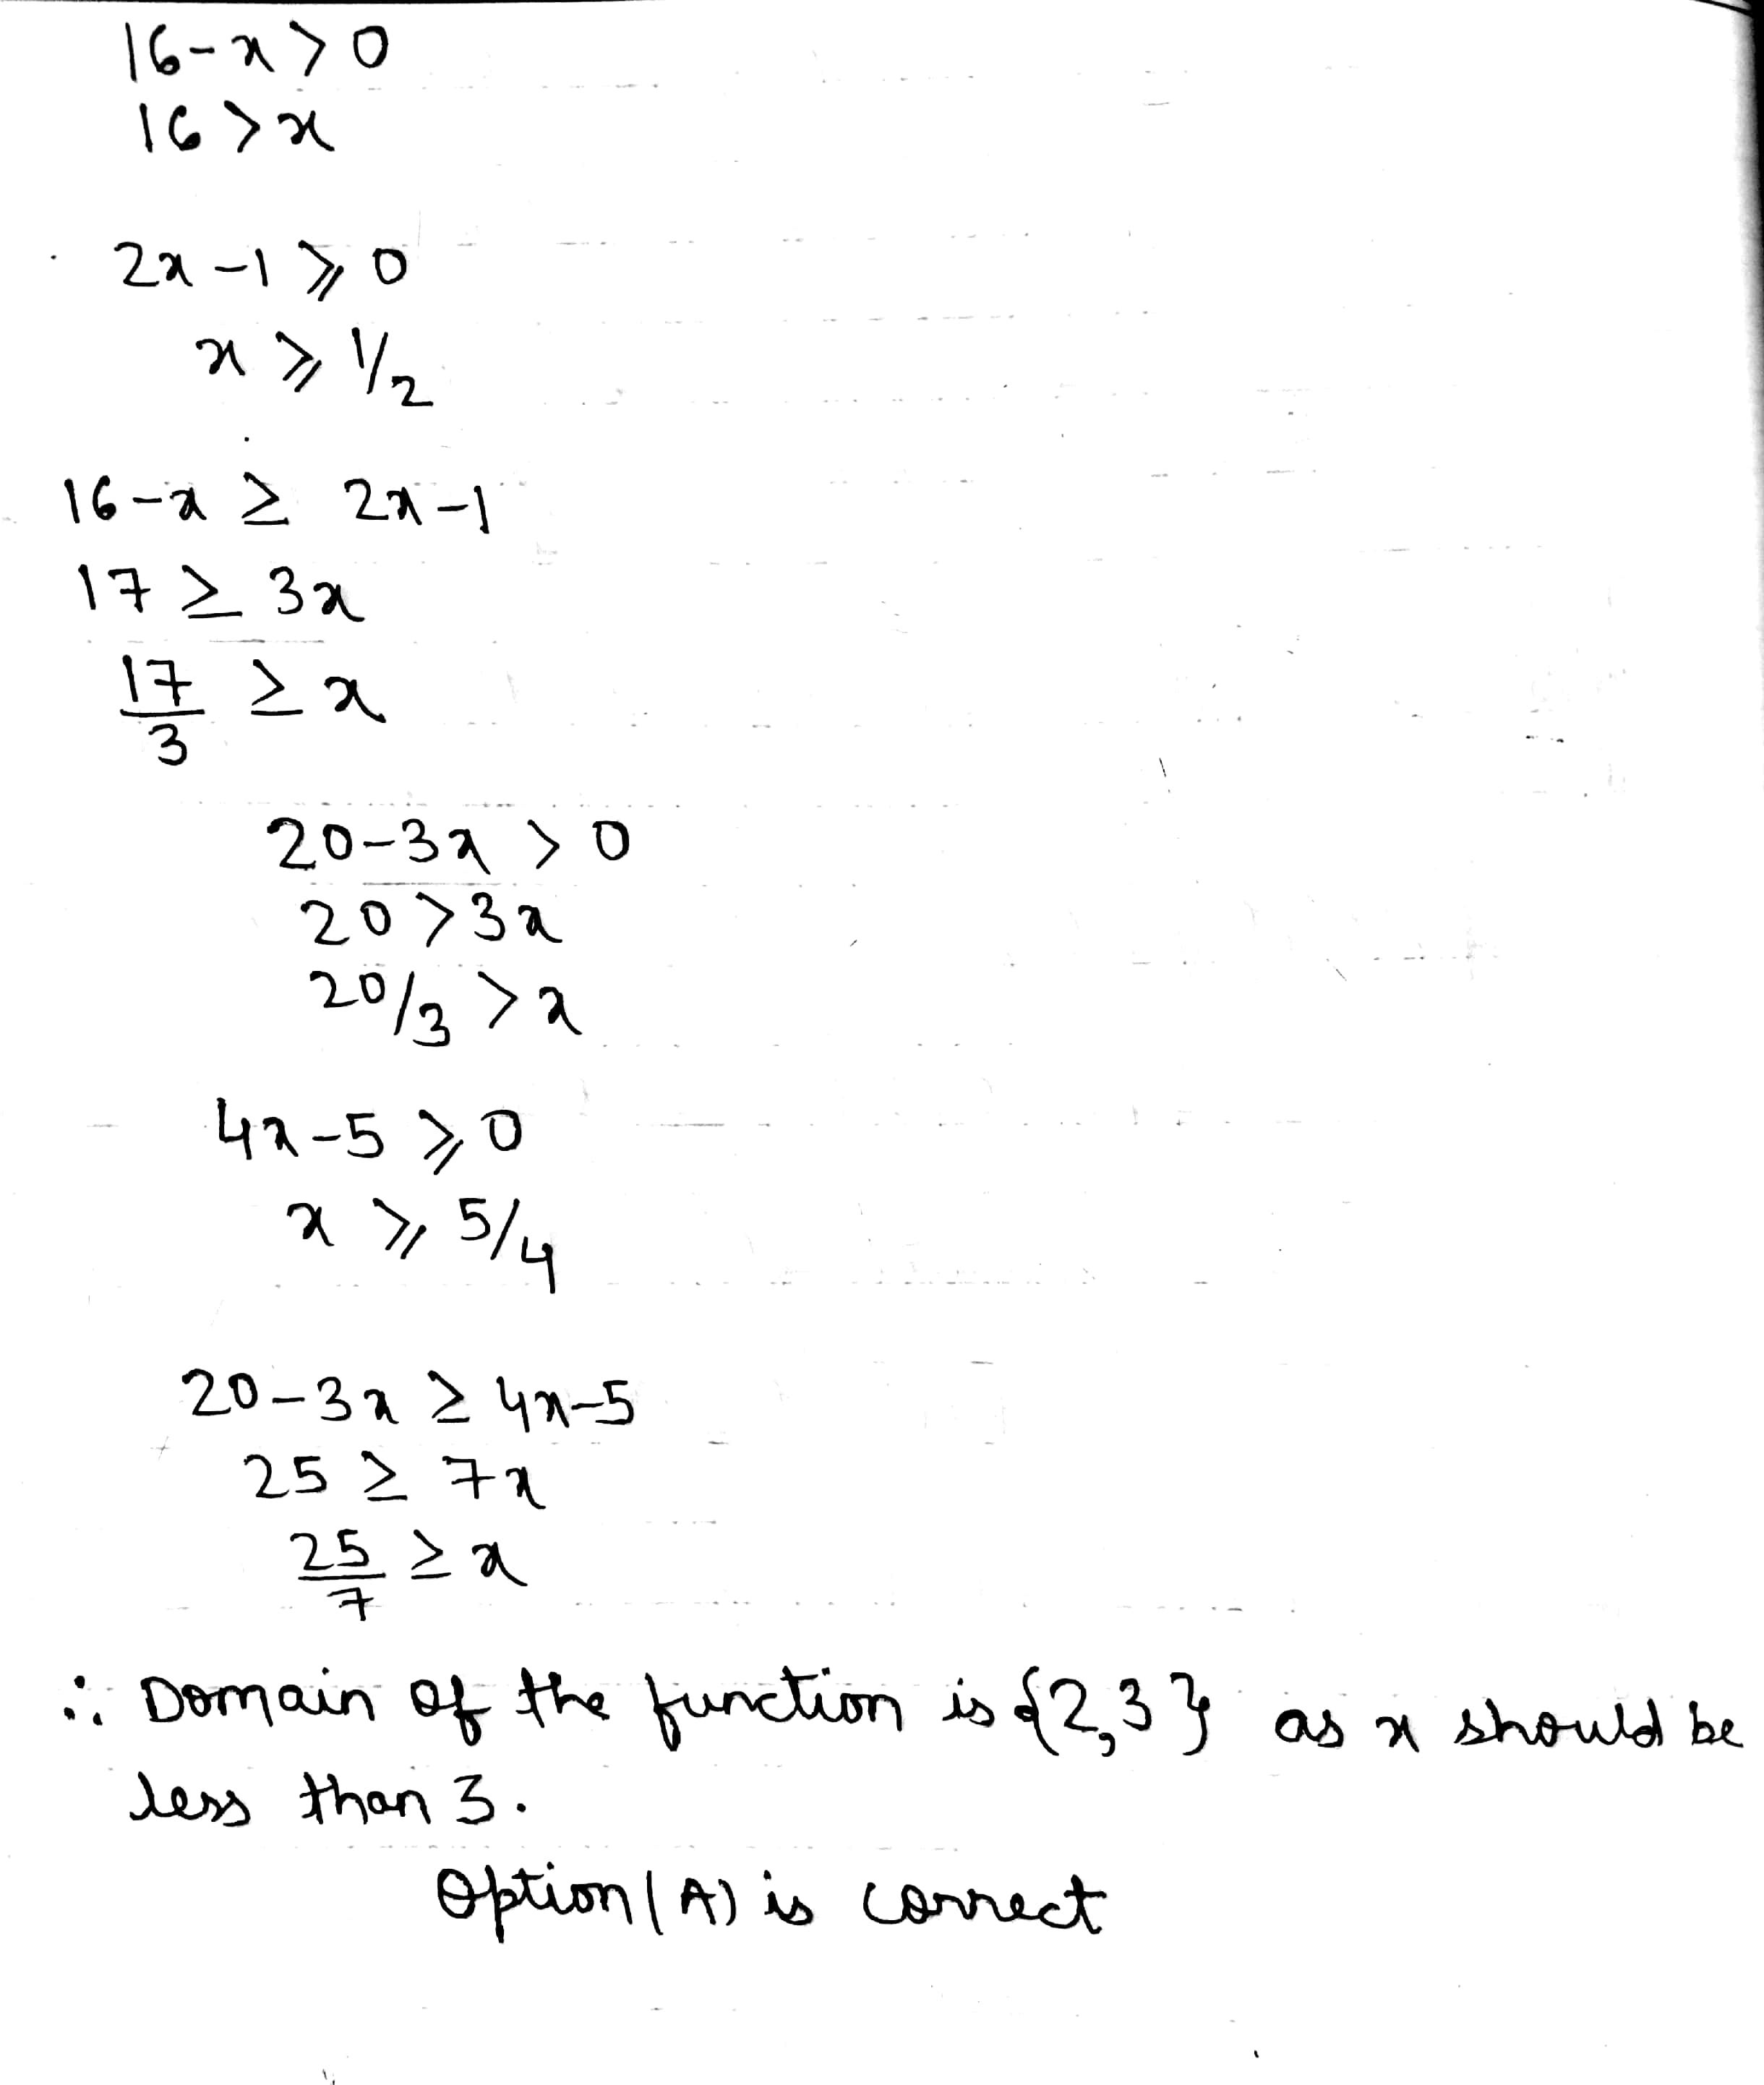 16-x>0
16>x
2x-1⩾0
x⩾1/2
16-x≥2x-1
17≥3x
17/3≥x
20-3x>0
20>3x
20/3>x
4x-5⩾0
x⩾5/4
20-3x≥4x-5
25≥7x
25/7≥x
∴ Domain of the function is {2,3} as x should be
less than 3.
Option (A) is correct